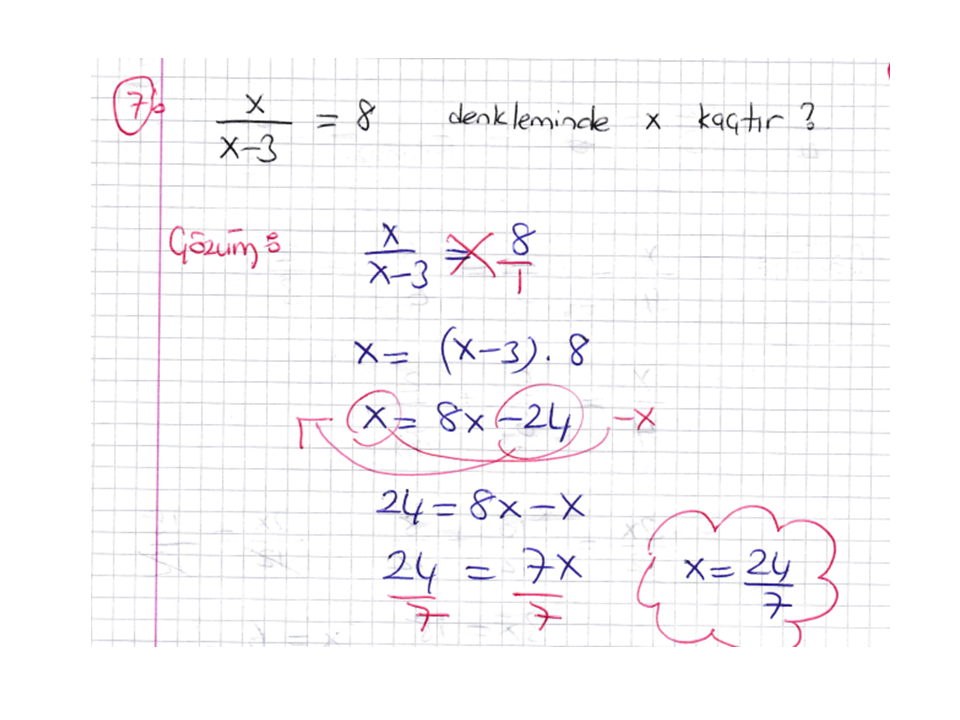 7) x/(x-3) = 8 denkleminde x kaçtır ?
Çözüm : x/(x-3) = 8/1
x = (x-3) . 8
x = 8x -24 -x
24 = 8x - x
24/7 = 7x/7 x = 24/7